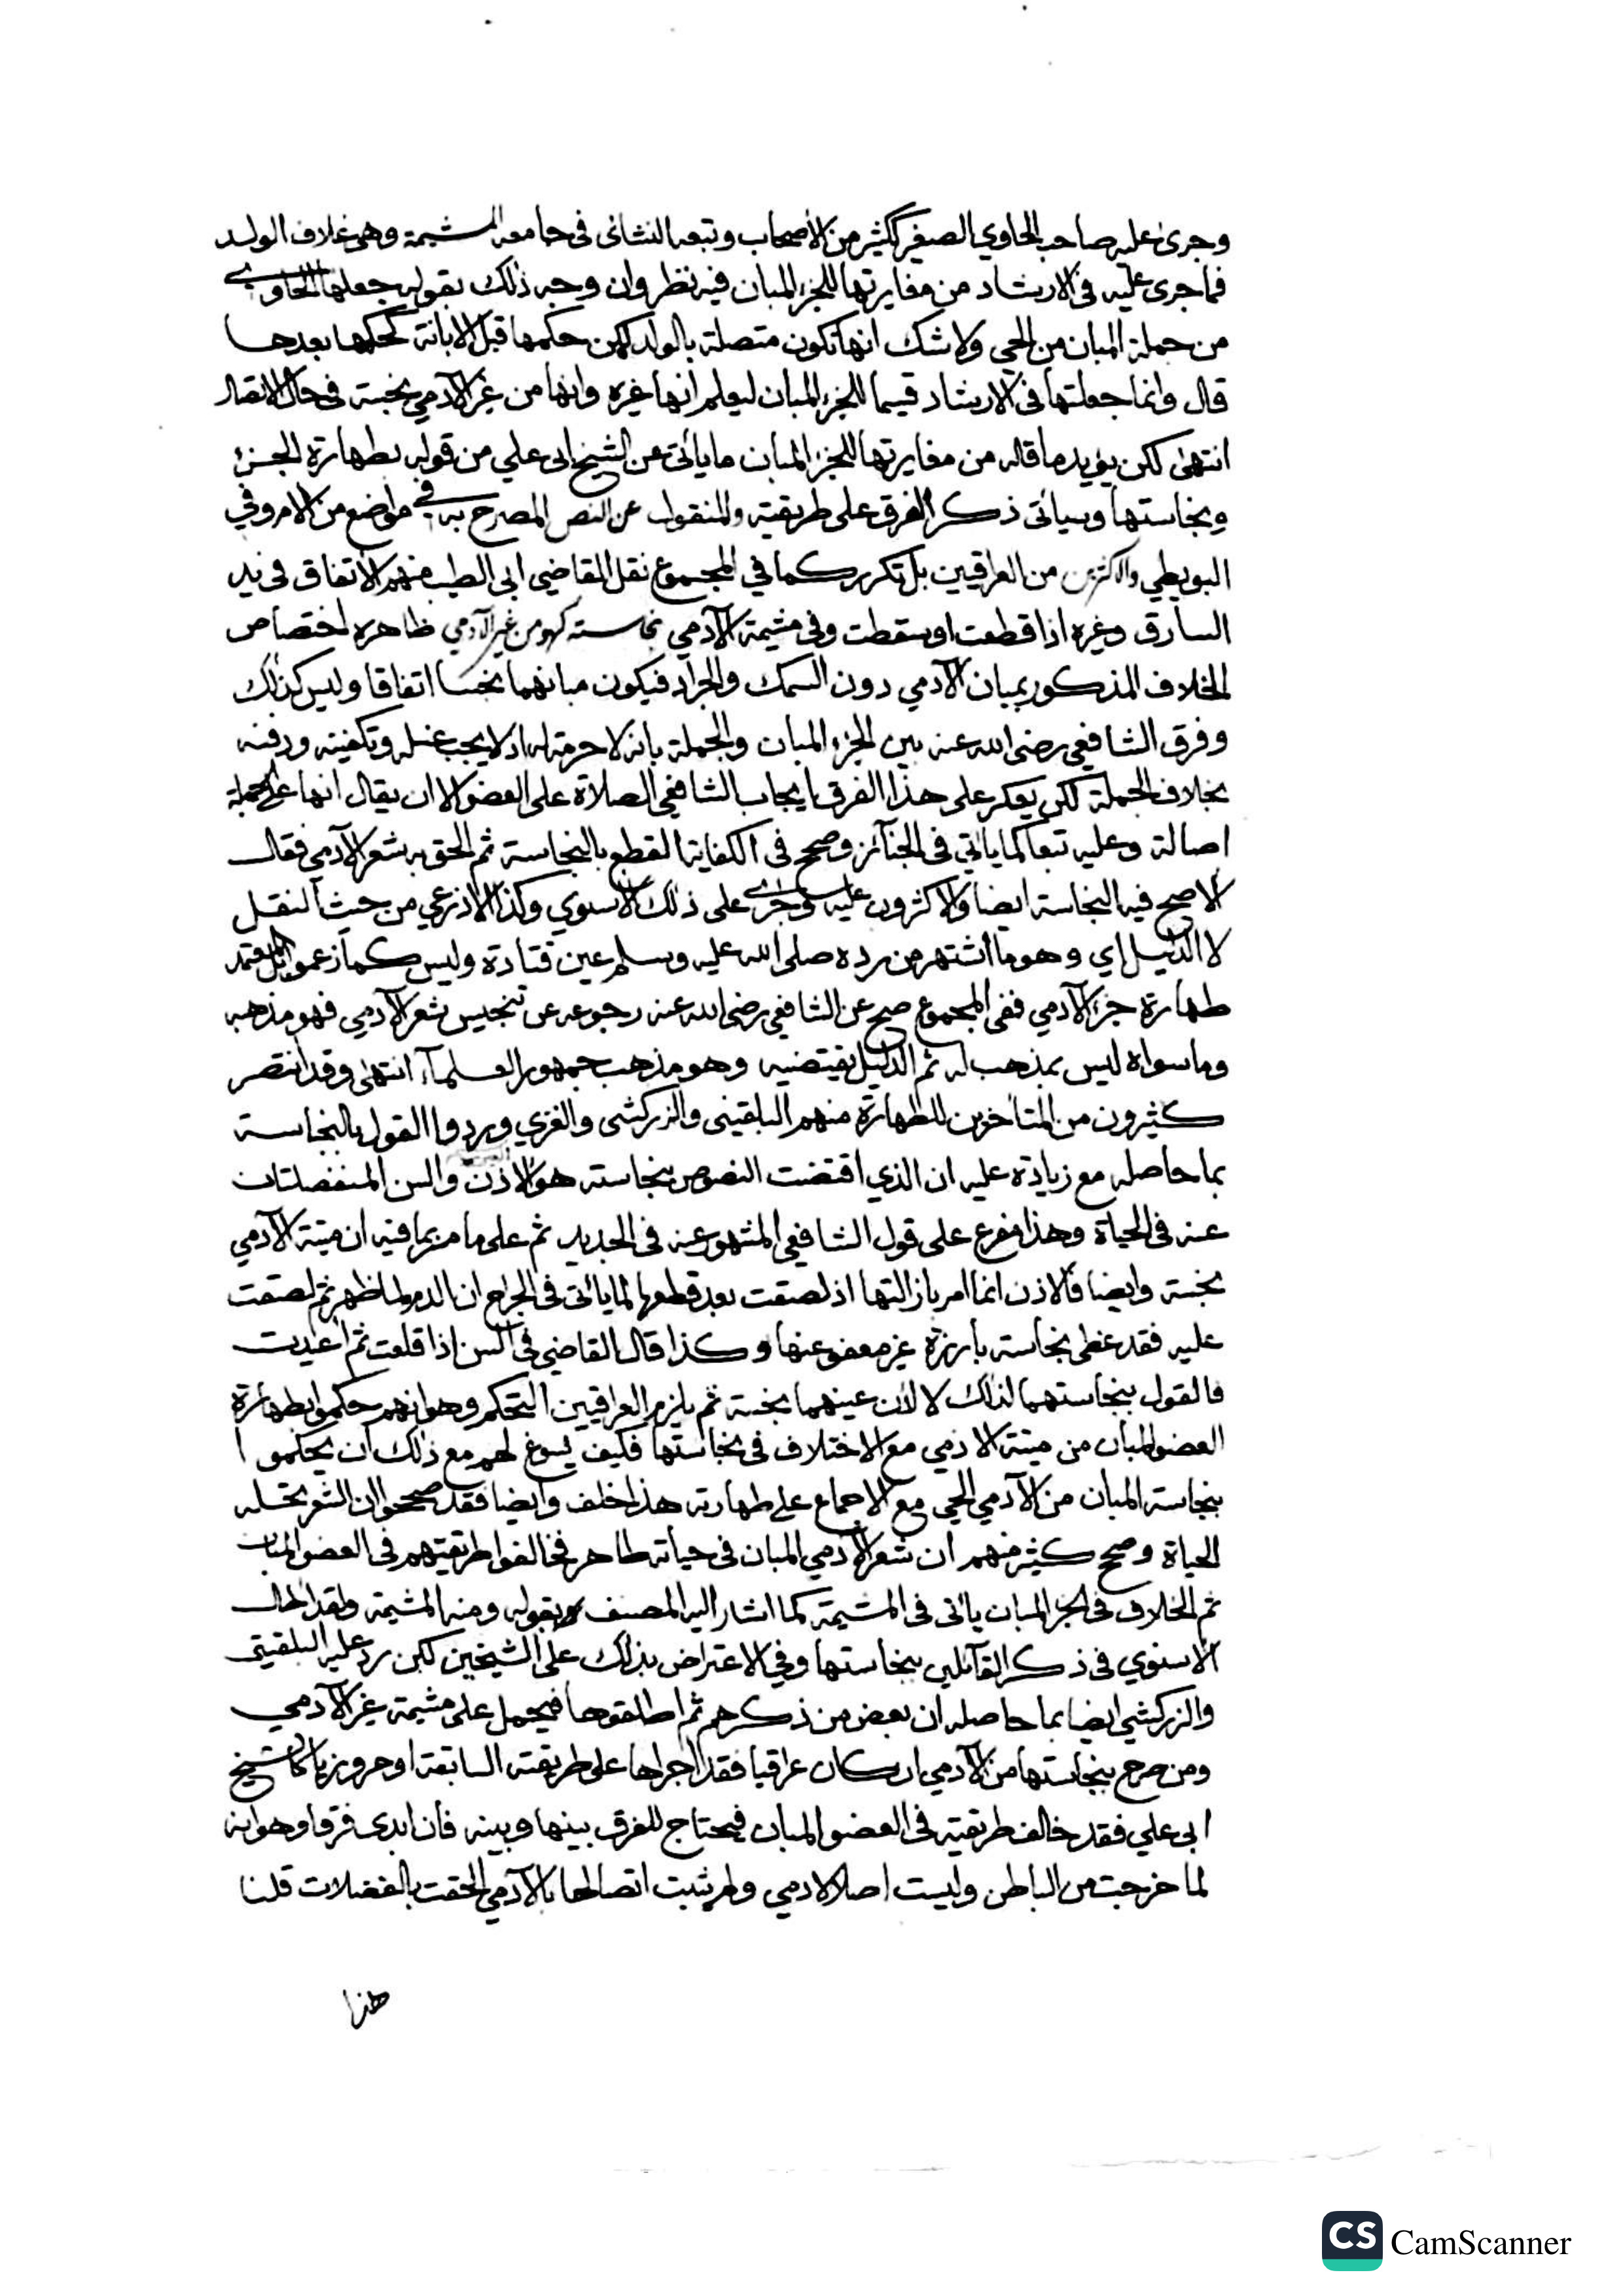 وجرى عليه صاحب الحاوي الصغير ككثير من الأصحاب وتبعه النشائى فى جامعه المشيمة وهى غلاف الولد
فما جرى عليه فى الارشاد من مغايرتها للجزء المبان فيه نظر وان وجه ذلك بقوله جعلها الحاوي
من جملة المبان من الحي ولا شك انها تكون متصلة بالولد لكن حكمها قبل الابانة كحكمها بعدها
قال وانما جعلتها فى الارشاد قسيما للجزء المبان ليعلم انها غيره وانها من غير الآدمي نجسة فى حال الاتصال
انتهى لكن يؤيد ما قاله من مغايرتها للجزء المبان ما يأتى عن الشيخ ابى علي من قوله بطهارة الجزء
ونجاستها وسيأتى ذكر الفرق على طريقته والمنقول عن النص المصرح به في مواضع من الام وفي
البويطي والاكثرين من العراقيين بل تكرر كما في المجموع نقل القاضي ابى الطيب منهم الاتفاق فى يد
السارق وغيره اذا قطعت او سقطت وفى مشيمة الآدمي نجاسته كهو من غير الآدمي ظاهره اختصاص
الخلاف المذكور بمبان الآدمي دون السمك والجراد فيكون مبانهما نجسا اتفاقا وليس كذلك
وفرق الشافعي رضى الله عنه بين الجزء المبان والجملة بانه لا حرمة له اذ لا يجب غسله وتكفينه ودفنه
بخلاف الجملة لكن يعكر على هذا الفرق بايجاب الشافعي الصلاة على العضو الا ان يقال انها على الجملة
اصالة وعليه تبعا كما يأتي فى الجنآئز وصحح فى الكفاية القطع بالنجاسة ثم الحق به شعر الآدمي فقال
الاصح فيه النجاسة ايضا والاكثرون عليه وجرى على ذلك الاسنوي وكذا الاذرعي من حيث النقل
لا الدليل اي وهو ما اشتهر من رده صلى الله عليه وسلم عين قتادة وليس كما زعموا بل المعتمد
طهارة جزء الآدمي ففى المجموع صح عن الشافعي رضى الله عنه رجوعه عن تنجيس شعر الآدمي فهو مذهبه
وما سواه ليس بمذهب له ثم الدليل يقتضيه وهو مذهب جمهور العلمآء انتهى وقد انتصر
كثيرون من المتأخرين للطهارة منهم البلقينى والزركشى والغزي وردوا القول بالنجاسة
بما حاصله مع زيادة عليه ان الذي اقتضت النصوص نجاسته هو الاذن والسن المنفصلتان
عنه فى الحياة وهذا مفرع على قول الشافعي المشهور عنه فى الجديد ثم على ما مر بما فيه ان ميتة الآدمي
نجسة وايضا فالاذن انما امر بازالتها اذ لصقت بعد قطعها لما يأتى فى الجراح ان الدم لما ظهر ثم لصقت
عليه فقد غطى نجاسة بارزة غير معفو عنها وكذا قال القاضي فى السن اذا قلعت ثم اعيدت
فالقول بنجاستهما لذلك لا لان عينهما نجسة ثم يلزم العراقيين التحكم وهو انهم حكموا بطهارة
العضو المبان من ميتة الادمي مع الاختلاف فى نجاستها فكيف يسوغ لهم مع ذلك ان يحكموا
بنجاسة المبان من الآدمي الحي مع الاجماع على طهارته هذا خلف وايضا فقد صححوا ان الشعر تحله
الحياة وصحح كثير منهم ان شعر الآدمي المبان فى حياته طاهر فخالفوا طريقتهم فى العضو المبان
ثم الخلاف فى الجزء المبان يأتى فى المشيمة كما اشار اليه المصنف بقوله ومنه المشيمة ولقد اطال
الاسنوي فى ذكر القآئلين بنجاستها وفي الاعتراض بذلك على الشيخين لكن رد عليه البلقيني
والزركشي ايضا بما حاصله ان بعض من ذكرهم ثم اطلقوها فيحمل على مشيمة غير الآدمي
ومن صرح بنجاستها من الآدمي ان كان عراقيا فقد اجراها على طريقته السابقة او مروزيا كالشيخ
ابى علي فقد خالف طريقته فى العضو المبان فيحتاج للفرق بينها وبينه فان ابدى فرقا وهو انه
لما خرجت من الباطن وليست اصلا لادمي ولم يثبت اتصالها بالآدمي الحقت بالفضلات قلنا
هذا
CS CamScanner